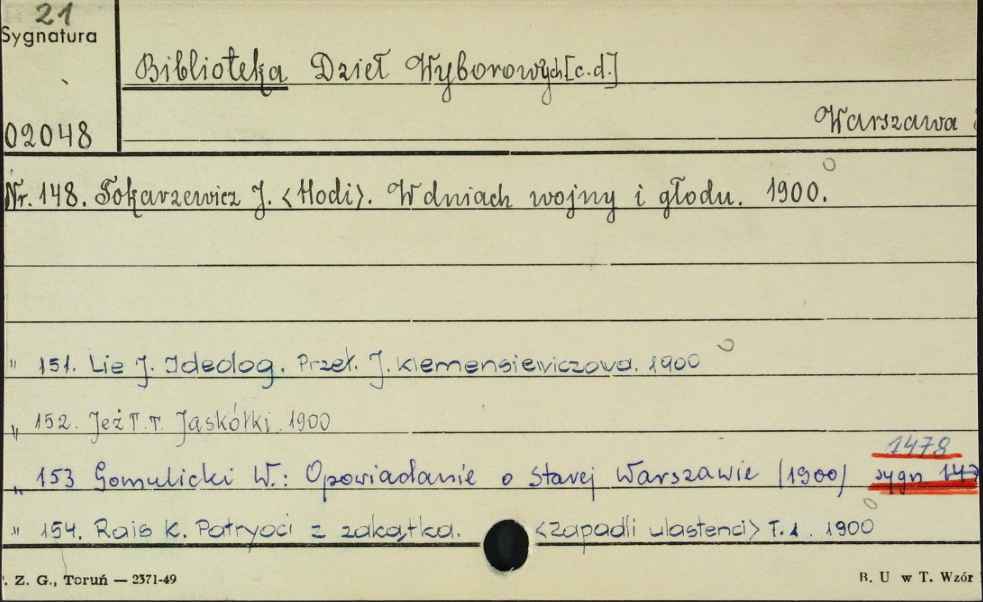 21
Sygnatura
Biblioteka Dzieł Wyborowych [c.d.]
Warszawa
02048
Nr. 148. Tokarzewicz J. <Hodi>. W dniach wojny i głodu. 1900.
" 151. Lie J. Ideolog. Przeł. J. Klemensiewiczowa. 1900
" 152. Jeż T.T. Jaskółki. 1900
1478
" 153 Gomulicki W.: Opowiadanie o Starej Warszawie (1900) sygn 147
" 154. Rais K. Patryoci z zakątka. <Zapadli vlastenci> T.1. 1900
. Z. G., Toruń — 2371-49
B. U w T. Wzór